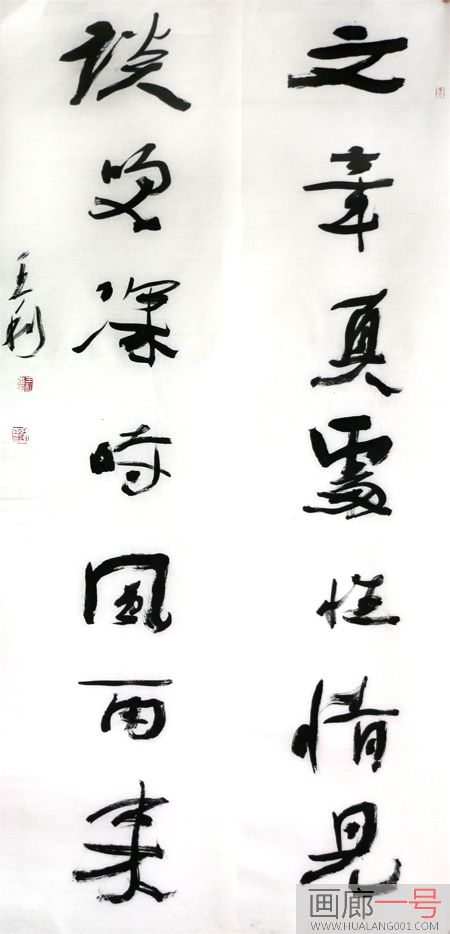 文章真處性情見
談咲深時風雨来
画廊一号
WWW.HUALANG001.COM